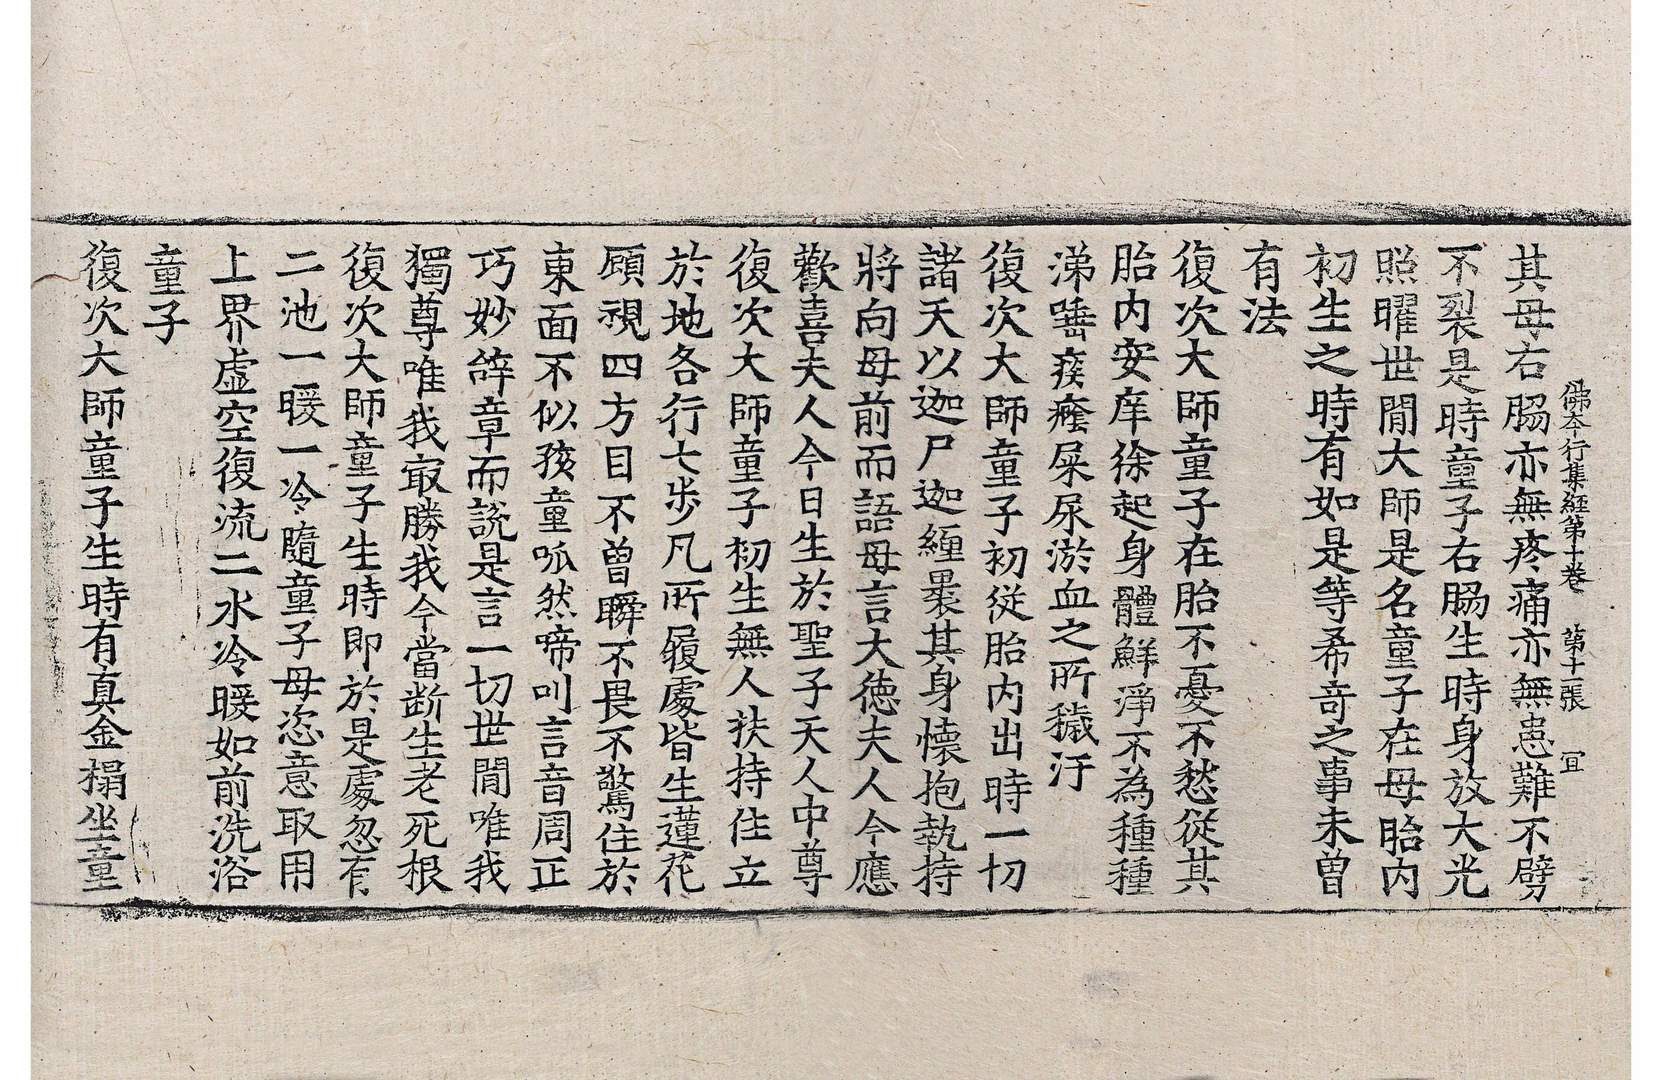 佛夲行集經第十卷　第十一張　冝
其母右脇亦無疼痛亦無患難不劈
不裂是時童子右脇生時身放大光
照曜世閒大師是名童子在母胎内
初生之時有如是等希奇之事未曽
有法
復次大師童子在胎不憂不愁従其
胎内安庠徐起身體鮮淨不為種種
涕唾痰癊屎尿淤血之所穢汙
復次大師童子初従胎内出時一切
諸天以迦尸迦緾褁其身懐抱執持
將向母前而語母言大德夫人今應
歡喜夫人今日生於聖子天人中尊
復次大師童子初生無人扶持住立
於地各行七步凡所履處皆生蓮花
顧視四方目不曾瞬不畏不驚住於
東面不似孩童呱然啼叫言音周正
巧妙辭章而說是言一切世閒唯我
獨尊唯我㝡勝我今當断生老死根
復次大師童子生時即於是處忽有
二池一暖一冷隨童子母恣意取用
上界虛空復流二水冷暖如前洗浴
童子
復次大師童子生時有真金榻坐童